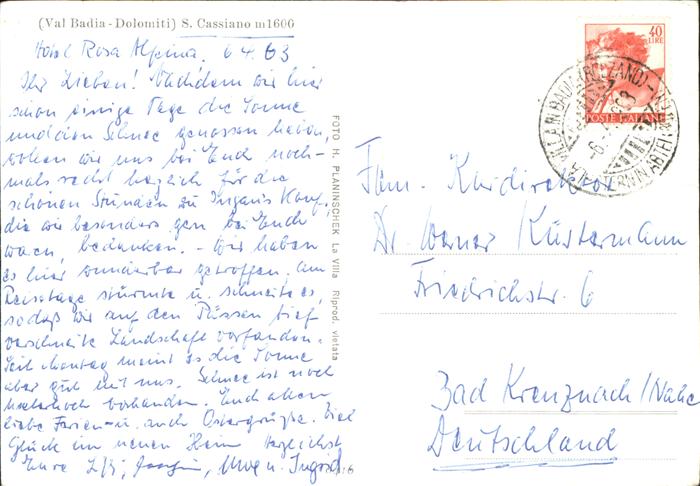 (Val Badia - Dolomiti) S. Cassiano m 1600
Hotel Rosa Alpina, 6.4.63
Ihr Lieben! Nachdem wir hier
schon einige Tage die Sonne
und den Schnee genossen haben,
wollen wir uns bei Euch noch-
mals recht herzlich für die
schönen Stunden zu Ingrids Konf.,
die wir besonders gern bei Euch
waren, bedanken. - Wir haben
es hier wunderbar getroffen. Am
Reisetage stürmte u. schneite es,
sodaß wir auf den Pässen tief
verschneite Landschaft vorfanden.
Seit Montag meint es die Sonne
aber gut mit uns. Schnee ist noch
meterhoch vorhanden. Euch allen
liebe Ferien- u. auch Ostergrüße. Viel
Glück im neuen Heim herzlichst
Eure Joachim, Uwe u. Ingrid
FOTO H. PLANINSCHEK La Villa Riprod. vietata
40
LIRE
POSTE ITALIANE
Fam. Kurdirektor
Dr. Werner Küstermann
Friedrichstr. 6
Bad Kreuznach/Nahe
Deutschland